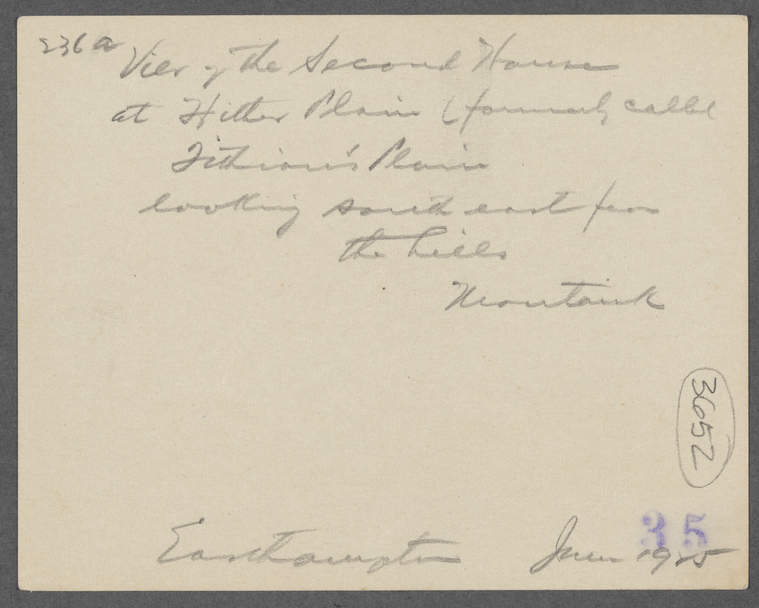 236a
View of the Second House
at Hither Plain (formerly called
Fithian's Plain
looking south east from
the hills
Montauk
3652
35
Easthampton June 1925